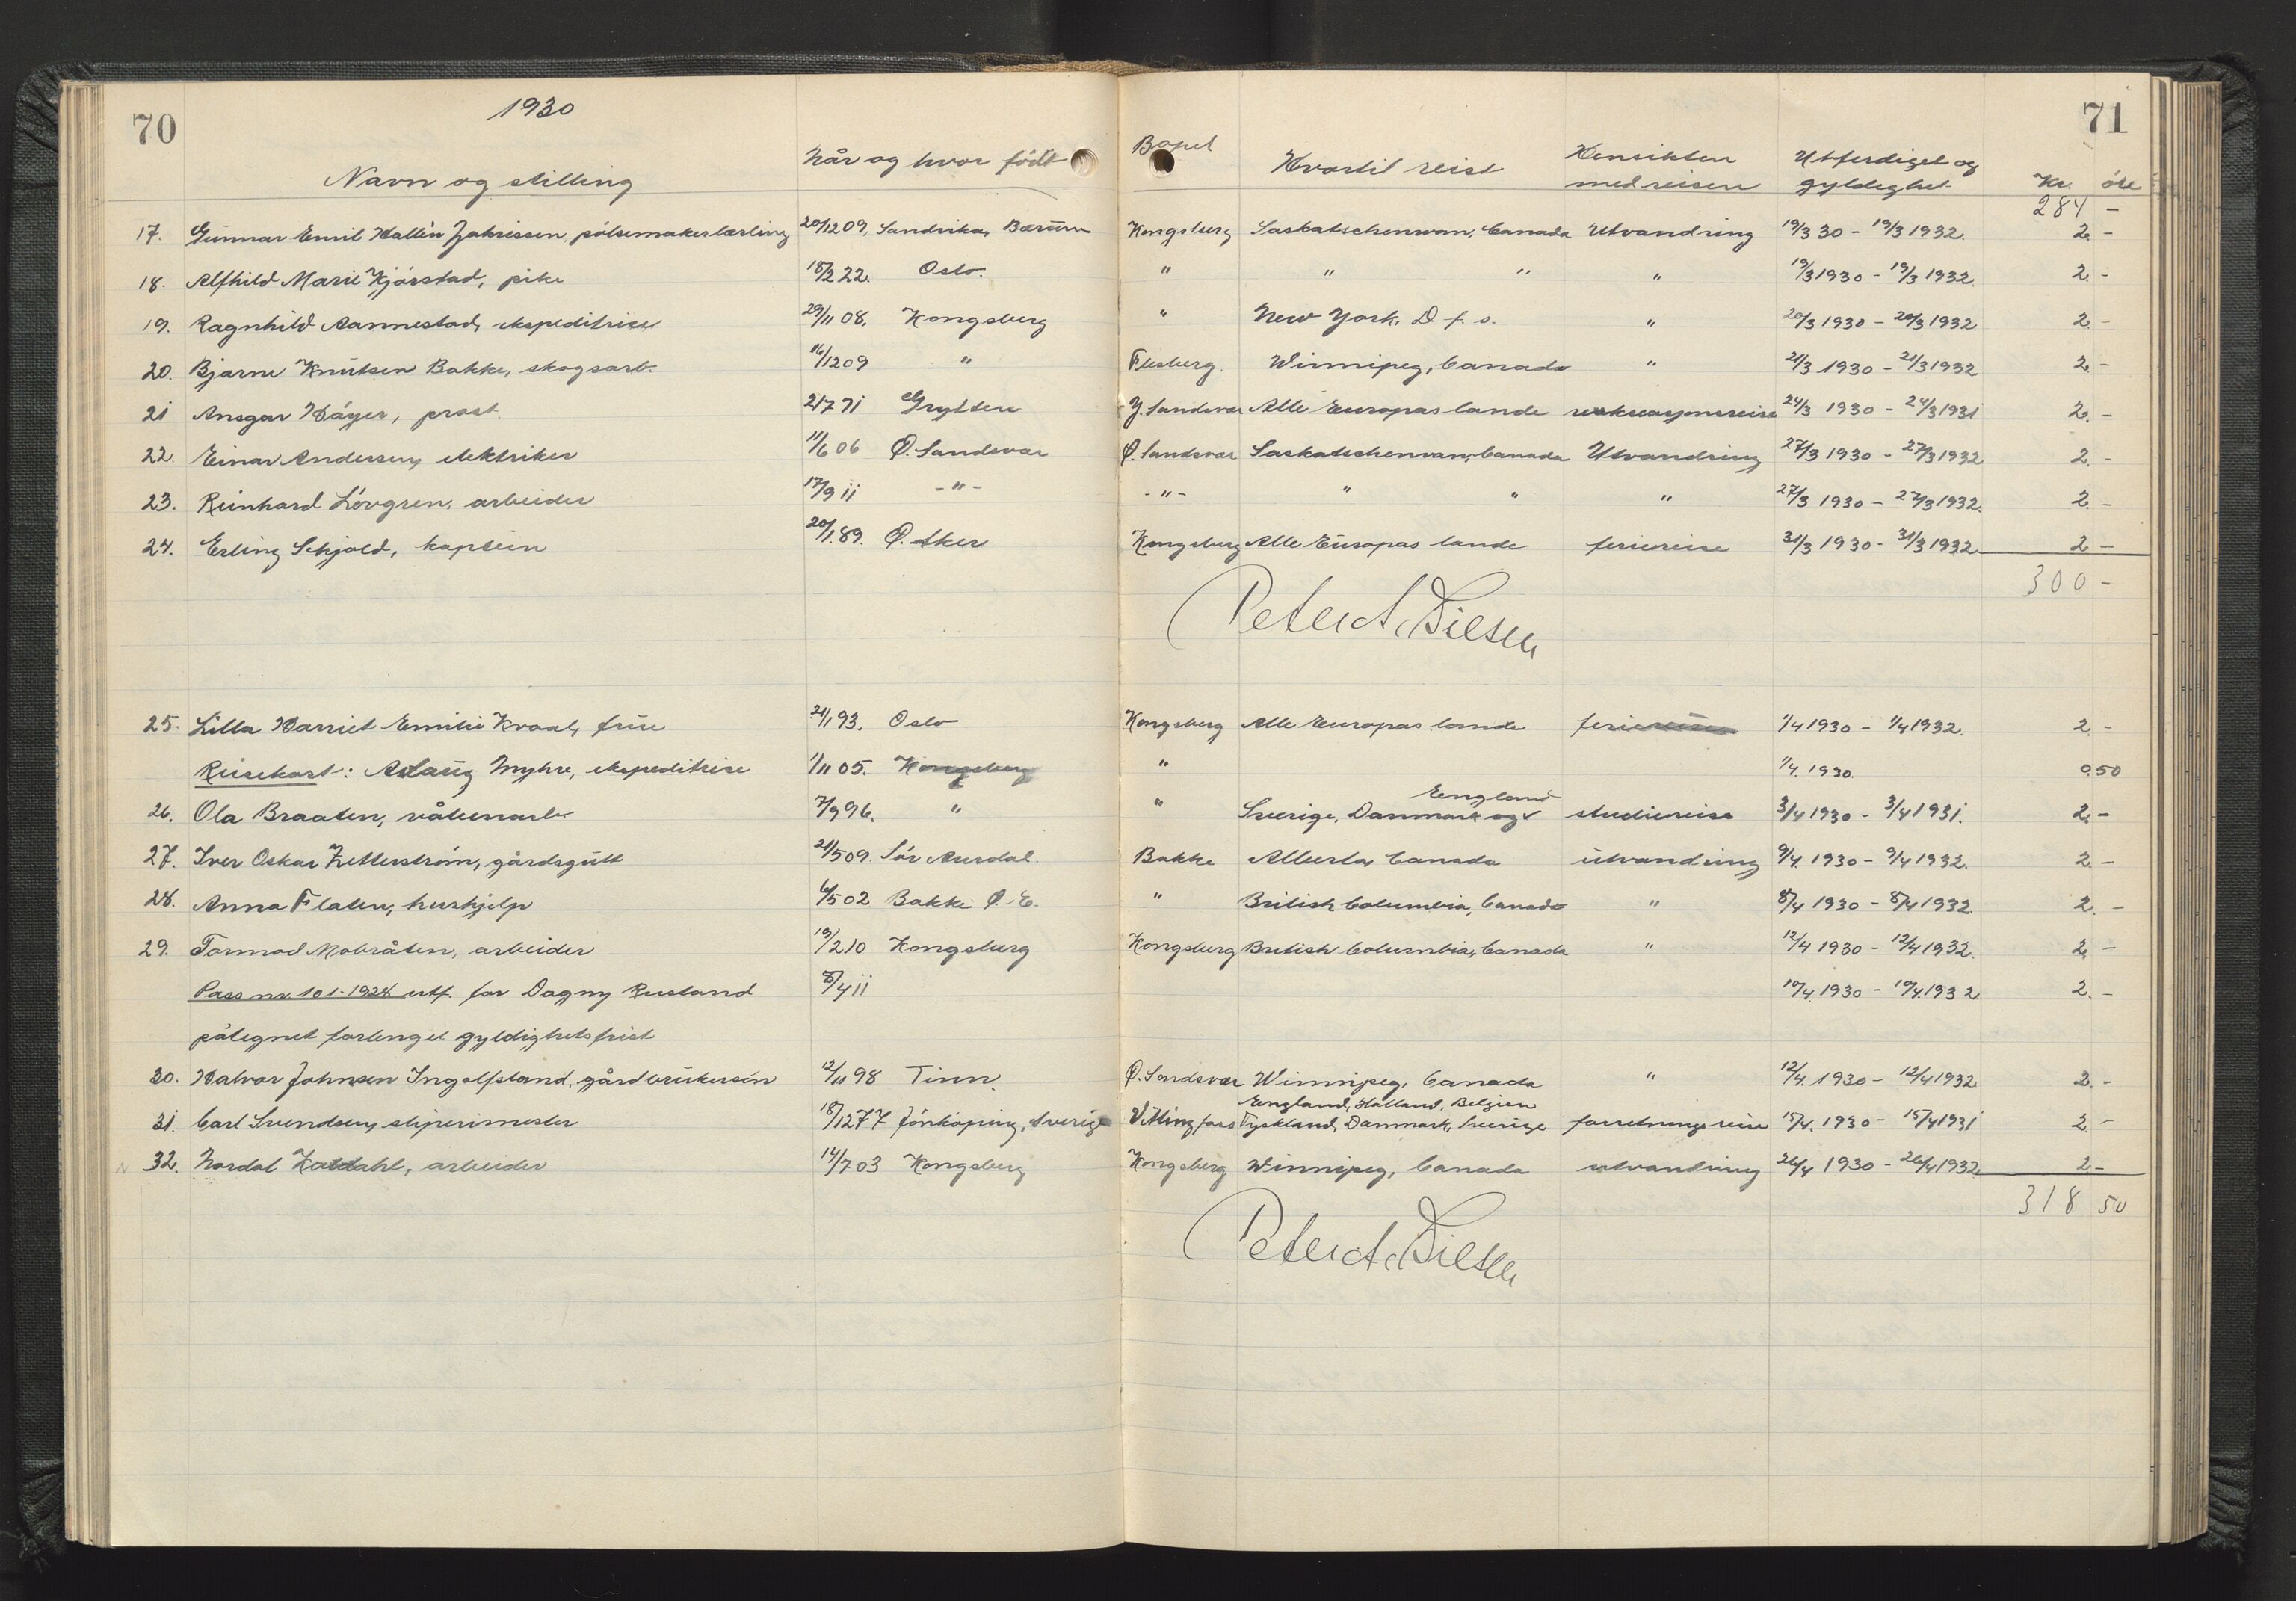 70
1930
71
Navn og stilling Når og hvor født Bopel Hvortil reist Hensikten med reisen Utferdiget og gyldighet Kr. öre
284 -
17. Gunnar Emil Hallin Zakrissen, pölsemakerlærling 20/12 09. Sandvika, Bærum Kongsberg Saskatschenwan, Canada Utvandring 19/3 30 - 19/3 1932. 2. -
18. Alfhild Marie Kjörstad, pike 18/2 22. Oslo. " " " " 19/3 1930 - 19/3 1932. 2. -
19. Ragnhild Aannestad, ekspeditrise 29/11 08. Kongsberg " New York, D. f. s. " 20/3 1930 - 20/3 1932 2. -
20. Bjarne Knutsen Bakke, skogsarb. 16/12 09 " Flesberg. Winnipeg, Canada " 21/3 1930 - 21/3 1932 2. -
21 Ansgar Höyer, prost. 21/7 71 Grytten Y. Sandsvær Alle Europas lande rekreasjonsreise 24/3 1930 - 24/3 1931 2. -
22. Einar Andersen, elektriker 11/6 06 Ø. Sandsvær Ø. Sandsvær Saskatschenwan, Canada Utvandring 27/3 1930 - 27/3 1932 2. -
23. Reinhard Lövgren, arbeider 17/9 11 - " - - " - " " " 27/3 1930 - 27/3 1932. 2. -
24. Erling Schjold, kaptein 20/1 89. Ø. Aker Kongsberg Alle Europas lande feriereise 31/3 1930 - 31/3 1932 2 -
300 -
25. Lilla Harriet Emilie Kvaal, frue 21/1 93. Oslo Kongsberg Alle Europas lande feriereise 1/4 1930 - 1/4 1932. 2. -
Reisekort: Aslaug Myhre, ekspeditrise 1/11 05. Kongsberg " 1/4. 1930. 0.50
26. Ola Braaten, våbenarb. 7/9 96. " " Sverige, Danmark og England studiereise 3/4 1930 - 3/4 1931. 2. -
27. Iver Oskar Zetterström, gårdsgutt 21/5 09. Sör Aurdal. Bakke Alberta, Canada utvandring 9/4. 1930 - 9/4 1932. 2. -
28. Anna Flaten, hushjelp 6/5 02 Bakke Ø. E. " British Columbia, Canada " 8/4 1930 - 8/4 1932 2. -
29. Tormod Mobråten, arbeider 19/2 10 Kongsberg Kongsberg British Columbia, Canada " 12/4 1930 - 12/4 1932. 2. -
Pass nr. 101-1928 utf. for Dagny Rustand 8/4 11 10/4. 1930 - 10/4. 1932. 2. -
påtegnet forlenget gyldighetsfrist
30. Halvor Johnsen Ingolfsland, gårdbrukersön 12/11 98 Tinn. Ø. Sandsvær Winnipeg, Canada " 12/4. 1930 - 12/4 1932 2. -
31. Carl Svendsen, sliperimester 18/12 77 Jönköping, Sverige Vittingfoss England, Holland, Belgien Tyskland, Danmark, Sverige forretningsreise 15/4. 1930 - 15/4 1931 2 -
32. Nordal Kaldahl, arbeider 14/7 03 Kongsberg Kongsberg Winnipeg, Canada utvandring 26/4 1930 - 26/4 1932 2 -
318 50